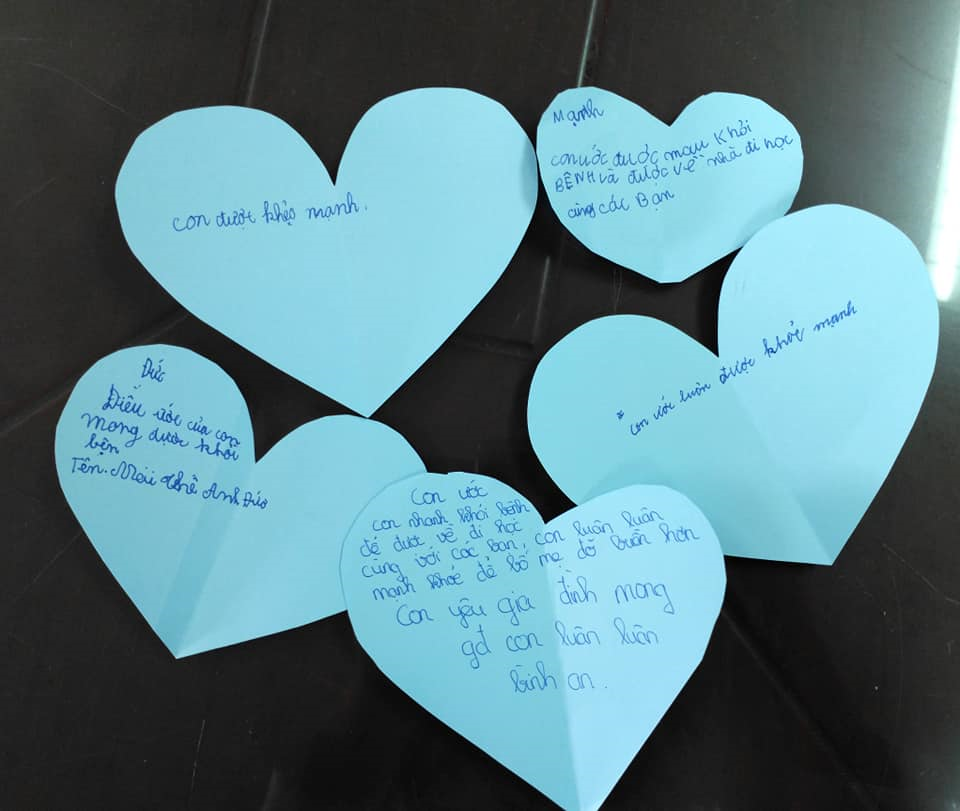 con được khỏe mạnh.
Mạnh
con ước được mau khỏi
BỆNH và được về nhà đi học
cùng các Bạn
* con ước luôn được khỏe mạnh
Đức
Điều ước của con
mong được khỏi
bện
Tên. Mai Thế Anh. Đức
Con ước
con nhanh khỏi bệnh
để được về đi học
cùng với các bạn, con luân luân
mạnh khỏe để bố mẹ đỡ buồn hơn
Con yêu gia đình mong
gđ con luân luân
bình an.